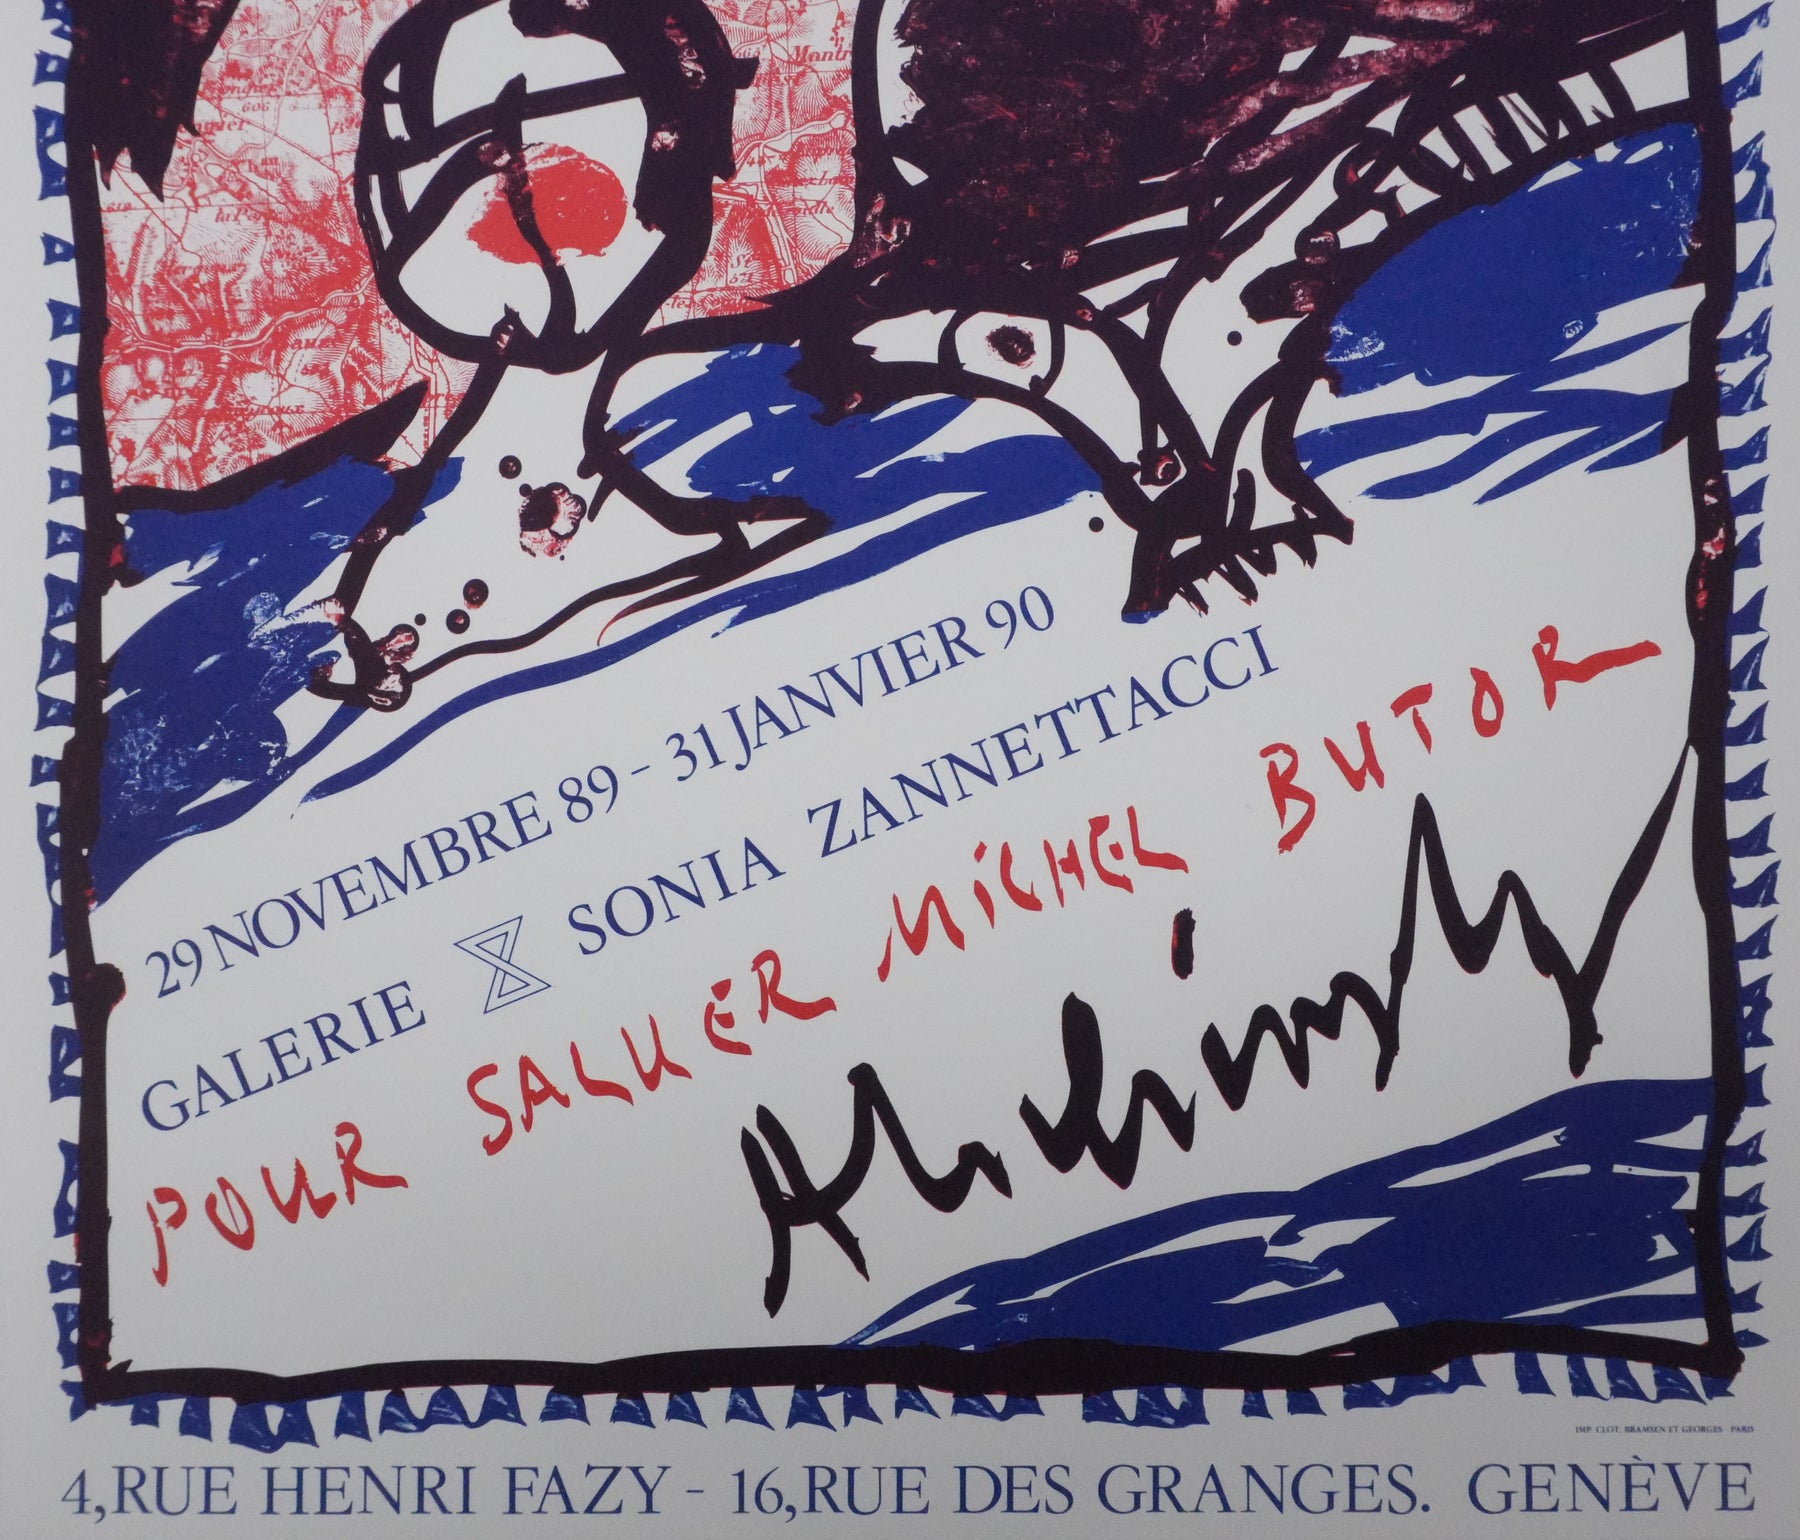 29 NOVEMBRE 89 - 31 JANVIER 90
GALERIE SONIA ZANNETTACCI
POUR SALUER MICHEL BUTOR
Alechinsky
IMP. CLOT, BRAMSEN ET GEORGES - PARIS
4, RUE HENRI FAZY - 16, RUE DES GRANGES. GENÈVE